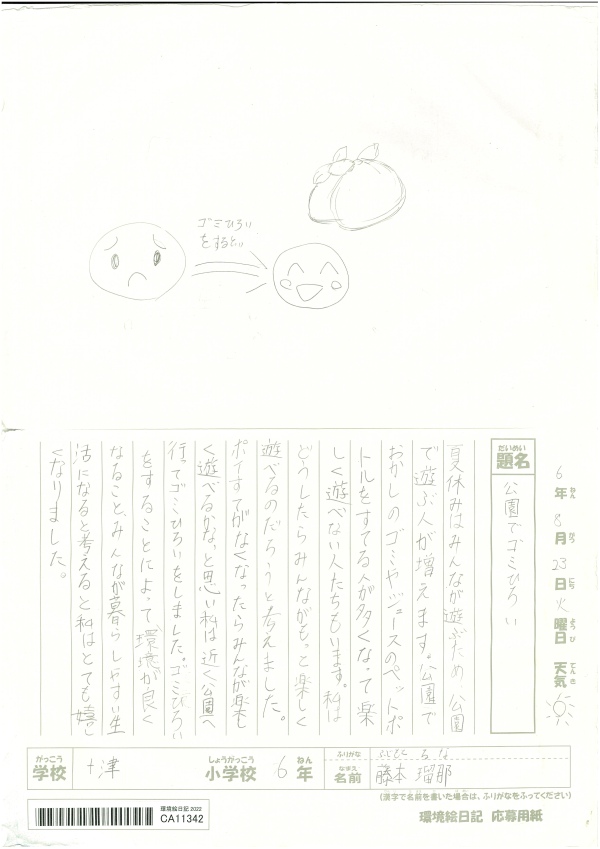 ゴミひろい
をすると‥
6年8月23日火曜日 天気
ねん がつ にち ようび てんき
だいめい
題名
公園でゴミひろい
夏休みはみんなが遊ぶため公園
で遊ぶ人が増えます。公園で
おかしのゴミやジュースのペットボ
トルをすてる人が多くなって楽
しく遊べない人たちもいます。私は
どうしたらみんながもっと楽しく
遊べるのだろうと考えました。
ポイすてがなくなったらみんなが楽し
く遊べるかなっと思い私は近く公園へ
行ってゴミひろいをしました。ゴミひろい
をすることによって環境が良く
なること、みんなが暮らしやすい生
活になると考えると私はとても嬉し
くなりました。
がっこう
学校
津
しょうがっこう ねん
小学校 6年
ふりがな
るな
なまえ
名前
藤本 瑠那
(漢字で名前を書いた場合は、ふりがなをふってください)
環境絵日記 2022
CA11342
環境絵日記 応募用紙